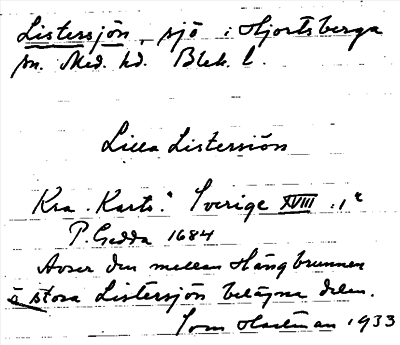 Listersjön, sjö i Hjortsberga
sn. Med. hd. Blek. l.
Lilla Listersiön
Kra. Karto: Sverige XVIII :1
P. Gedda 1684
Avser den mellan Hängbrunnen
o stora Listersjön belägna delen.
Hartman 1933